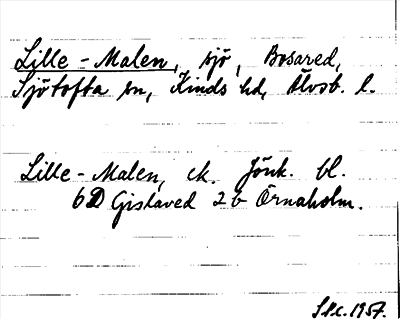 Lille-Malen, sjö, Bosared,
Sjötofta sn, Kinds hd, Älvsb. l.
Lille-Malen, ek. Jönk. bl.
6D Gislaved 2b Örnaholm.
1957.